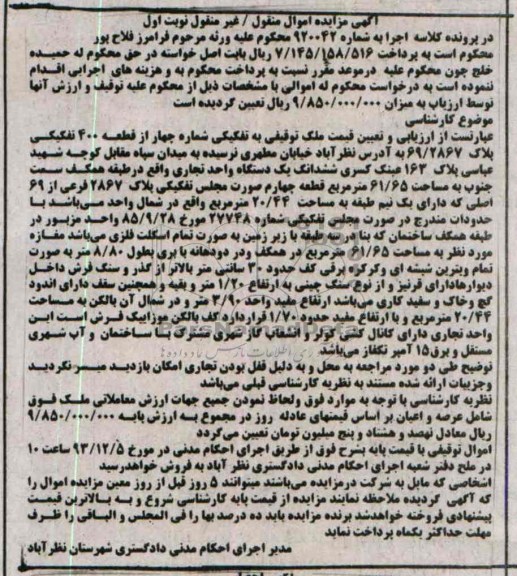 آگهی مزایده اموال منقول / غیر منقول نوبت اول
در پرونده کلاسه اجرا به شماره ۹۲۰۰۴۲ محکوم علیه ورثه مرحوم فرامرز فلاح پور
محکوم است به پرداخت ۷/۱۴۵/۱۵۸/۵۱۶ ریال بابت اصل خواسته در حق محکوم له حمیده
خلج چون محکوم علیه درموعد مقرر نسبت به پرداخت محکوم به و هزینه های اجرایی اقدام
ننموده است به درخواست محکوم له اموالی با مشخصات ذیل از محکوم علیه توقیف و ارزش آنها
توسط ارزیاب به میزان ۹/۸۵۰/۰۰۰/۰۰۰ ریال تعیین گردیده است
موضوع کارشناسی
عبارتست از ارزیابی و تعیین قیمت ملک توقیفی به تفکیکی شماره چهار از قطعه ۴۰۰ تفکیکی
پلاک ۶۹/۲۸۶۷ به آدرس نظرآباد خیابان مطهری نرسیده به میدان سپاه مقابل کوچه شهید
عباسی پلاک ۱۶۳ عینک کسری ششدانگ یک دستگاه واحد تجاری واقع درطبقه همکف سمت
جنوب به مساحت ۶۱/۶۵ مترمربع قطعه چهارم صورت مجلس تفکیکی پلاک ۲۸۶۷ فرعی از ۶۹
اصلی که دارای یک نیم طبقه به مساحت ۲۰/۴۴ مترمربع واقع در شمال واحد می‌باشد با
حدودات مندرج در صورت مجلس تفکیکی شماره ۲۷۷۴۸ مورخ ۸۵/۹/۲۸ واحد مزبور در
طبقه همکف ساختمان که بنا در سه طبقه با زیر زمین به صورت تمام اسکلت فلزی می‌باشد مغازه
مورد نظر به مساحت ۶۱/۶۵ مترمربع در همکف ودر دودهانه با بری بطول ۸/۸۰ متر به صورت
تمام ویترین شیشه ای وکرکره برقی کف حدود ۳۰ سانتی متر بالاتر از گذر و سنگ فرش داخل
دیوارهادارای قرنیز و از نوع سنگ چینی به ارتفاع ۱/۲۰ متر و بقیه و همچنین سقف دارای اندود
گچ وخاک و سفید کاری می‌باشد ارتفاع مفید واحد ۳/۹۰ متر و در شمال آن بالکن به مساحت
۲۰/۴۴ مترمربع و با ارتفاع مفید حدود ۱/۷۰ قرارداره کف بالکن موزاییک فرش است این
واحد تجاری دارای کانال کشی کولر و انشعاب گاز شهری مشترک با ساختمان و آب شهری
مستقل و برق ۱۵ آمپر تکفاز می‌باشد
توضیح طی دو مورد مراجعه به محل و به دلیل قفل بودن تجاری امکان بازدید میسر نگردید
وجزییات ارائه شده مستند به نظریه کارشناسی قبلی می‌باشد
نظریه کارشناسی با توجه به موارد فوق ولحاظ نمودن جمیع جهات ارزش معاملاتی ملک فوق
شامل عرصه و اعیان بر اساس قیمتهای عادله روز در مجموع به ارزش پایه ۹/۸۵۰/۰۰۰/۰۰۰
ریال معادل نهصد و هشتاد و پنج میلیون تومان تعیین می‌گردد
اموال توقیفی با قیمت پایه بشرح فوق از طریق اجرای احکام مدنی در مورخ ۹۳/۱۲/۵ ساعت ۱۰
در ملح دفتر شعبه اجرای احکام مدنی دادگستری نظر آباد به فروش خواهدرسید
اشخاصی که مایل به شرکت درمزایده می‌باشند میتوانند ۵ روز قبل از روز معین مزایده اموال را
که آگهی گردیده ملاحظه نمایند مزایده از قیمت پایه کارشناسی شروع و به بالاترین قیمت
پیشنهادی فروخته خواهدشد برنده مزایده باید ده درصد بها را فی المجلس و الباقی را ظرف
مهلت حداکثر یکماه پرداخت نماید
مدیر اجرای احکام مدنی دادگستری شهرستان نظرآباد